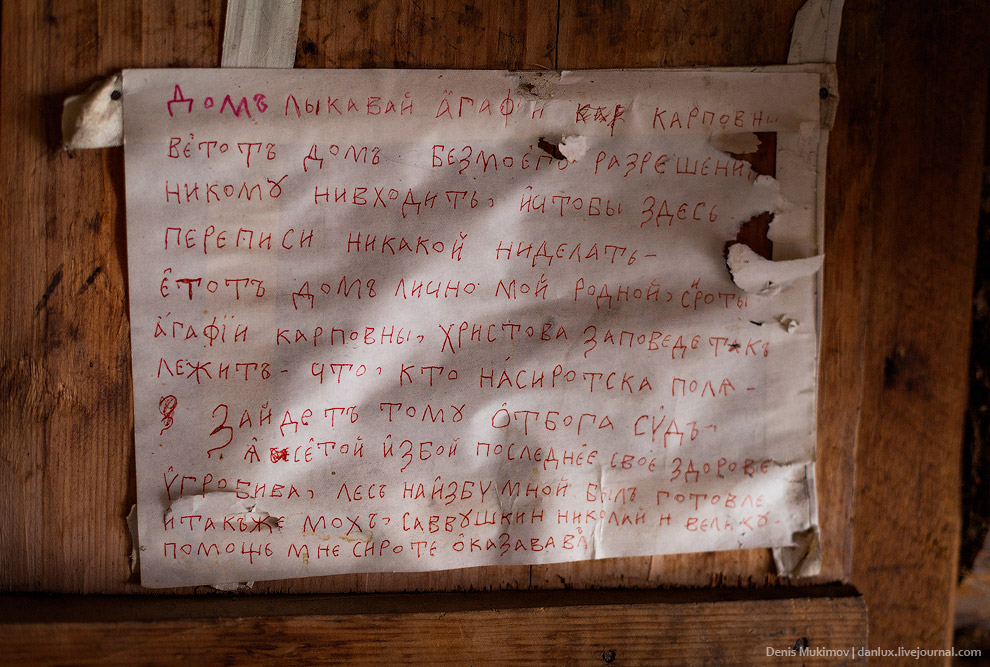 Домъ лыкавай а҆гафїи карповны
ве҆тотъ домъ безмоего разрешени
никомꙋ нивходить, и҆чтобы здесь
переписи никакой ниделать-
е҆тотъ домъ лично мой родной, сїроты
а҆гафїи карповны, христова заповеде такъ
лежитъ- что, кто на́сиротска поля-
зайдетъ томꙋ о҆тбога сꙋдъ-
а҆ се҆той и҆збой последнее свое здорове
ꙋ҆гробива, лесъ наи҆збꙋ мной былъ готовле
и҆такъже мохъ, саввꙋшкин николай н велїкꙋ-
помоще мне сироте о҆казавав
Denis Mukimov | danlux.livejournal.com